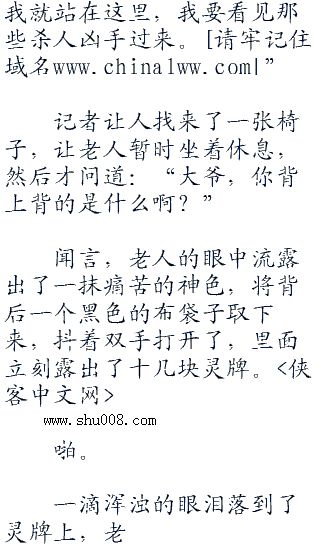 我就站在这里，我要看见那
些杀人凶手过来。[请牢记住
域名www.china1ww.com|”
记者让人找来了一张椅
子，让老人暂时坐着休息，
然后才问道：“大爷，你背
上背的是什么啊？”
闻言，老人的眼中流露
出了一抹痛苦的神色，将背
后一个黑色的布袋子取下
来，抖着双手打开了，里面
立刻露出了十几块灵牌。<侠
客中文网>
www.shu008.com
啪。
一滴浑浊的眼泪落到了
灵牌上，老